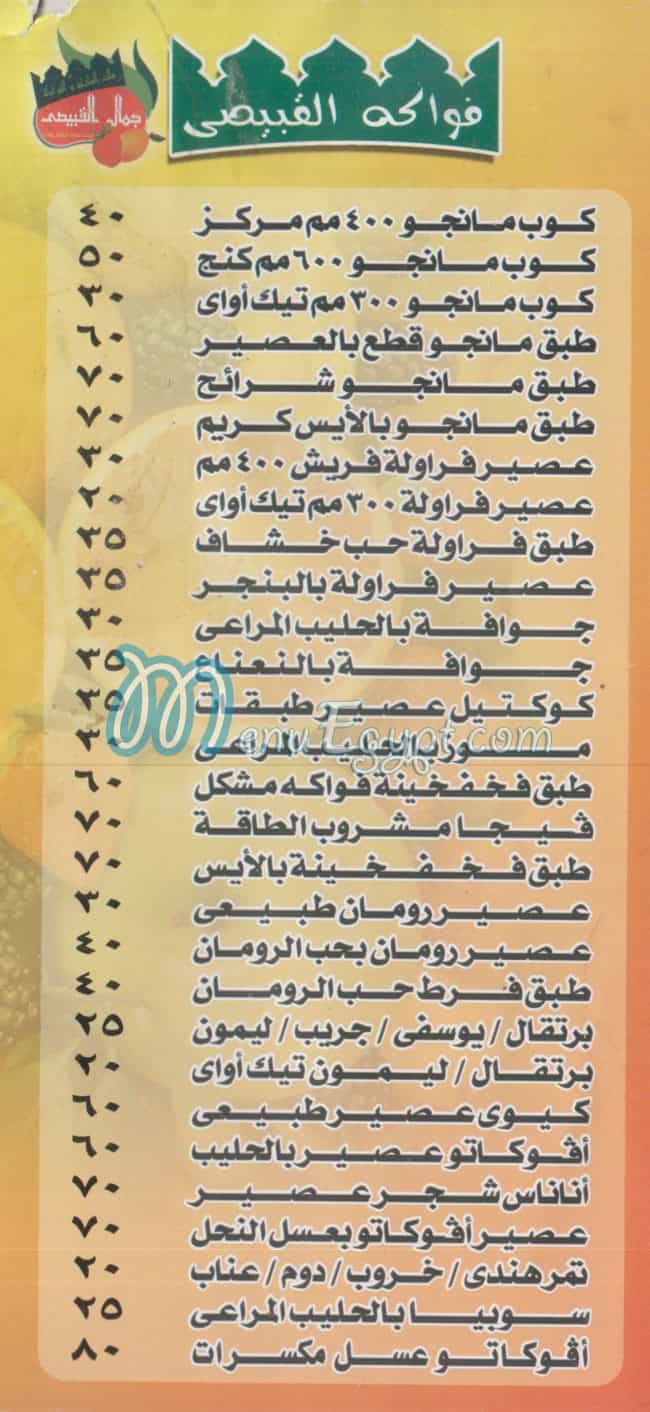 فواكه القبيصى
جمال القبيصى
كوب مانجو ٤٠٠ مم مركز ٤٠
كوب مانجو ٦٠٠ مم كنج ٥٠
كوب مانجو ٣٠٠ مم تيك أواى ٣٠
طبق مانجو قطع بالعصير ٦٠
طبق مانجو شرائح ٧٠
طبق مانجو بالأيس كريم ٧٠
عصير فراولة فريش ٤٠٠ مم ٣٠
عصير فراولة ٣٠٠ مم تيك أواى ٢٠
طبق فراولة حب خشاف ٣٥
عصير فراولة بالبنجر ٣٥
جوافة بالحليب المراعى ٣٠
جوافة بالنعناع ٢٥
كوكتيل عصير طبقات ٣٥
موز بالحليب المراعى ٣٠
طبق فخفخينة فواكه مشكل ٦٠
ڤيجا مشروب الطاقة ٧٠
طبق فخفخينة بالأيس ٧٠
عصير رومان طبيعى ٣٠
عصير رومان بحب الرومان ٤٠
طبق فرط حب الرومان ٤٠
برتقال / يوسفى / جريب / ليمون ٢٥
برتقال / ليمون تيك أواى ٢٠
كيوى عصير طبيعى ٦٠
أڤوكاتو عصير بالحليب ٦٠
أناناس شجر عصير ٧٠
عصير أڤوكاتو بعسل النحل ٧٠
تمرهندى / خروب / دوم / عناب ٢٠
سوبيا بالحليب المراعى ٢٥
أڤوكاتو عسل مكسرات ٨٠
MenuEgypt.com